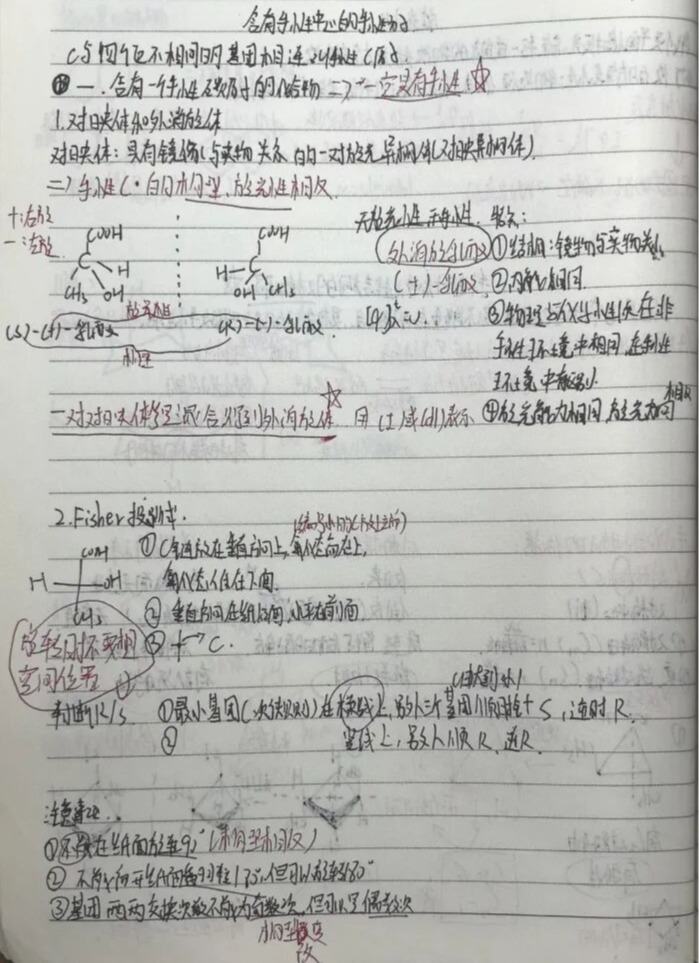 含有手性中心的手性分子
C与四个互不相同的基团相连
一.含有一个手性 化合物 => 一定具有手性 ☆
1.对映体和外消旋体
对映体：具有镜像与实物关系的一对旋光异构体(对映异构体).
=> 手性C·构型、旋光性相反.
+:右旋
-:左旋
COOH
C
H
CH3 OH
COOH
H C
OH CH3
旋光性
(S)-(+)-乳酸
(R)-(-)-乳酸
构型
无旋光性 手性.
外消旋乳酸
(±)-乳酸
特点：
①结构：镜物与实物关系
②内能相同.
③物理与化学性质在非
手性环境中相同，在手性
环境中有区别.
④旋光能力相同，旋光方向相反
一对对映体等量混合得到外消旋体 ☆ 用(±)或(dl)表示
2.Fisher投影式.
COOH
H OH
CH3
①C链放在垂直方向上，氧化态高在上，
氧化态低在下面.
②垂直方向在纸后面，水平在前面
③ + → C.
旋转时不要想
空间位置
判断R/S
①最小基团(次序规则)在横线上，另外三个基团顺时针 S，逆时 R.
②竖线上，另外顺R、逆R.
注意事项..
①不能在纸面旋转90°(构型相反)
②不能离开纸面翻转180°，但可以旋转180°
③基团两两交换次数不能为奇数次，但可以是偶数次
构型改变